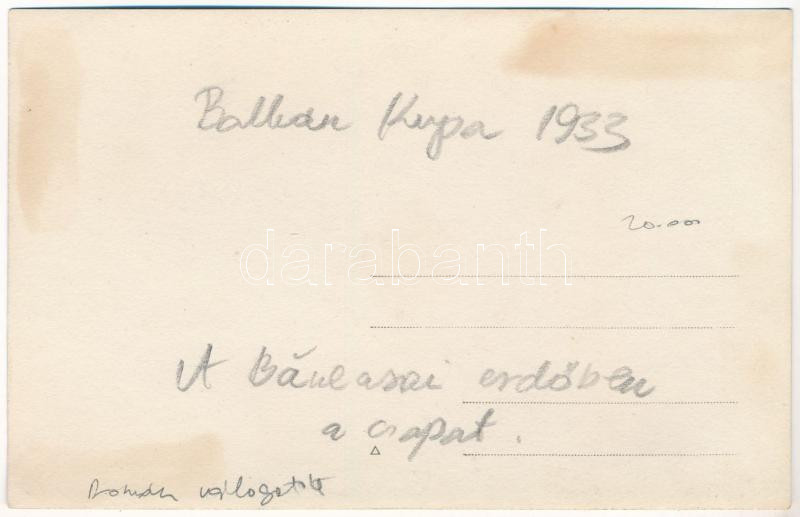 Balkán Kupa 1933
20.000
darabanth
A Băneasai erdőben
a csapat.
Román válogatott